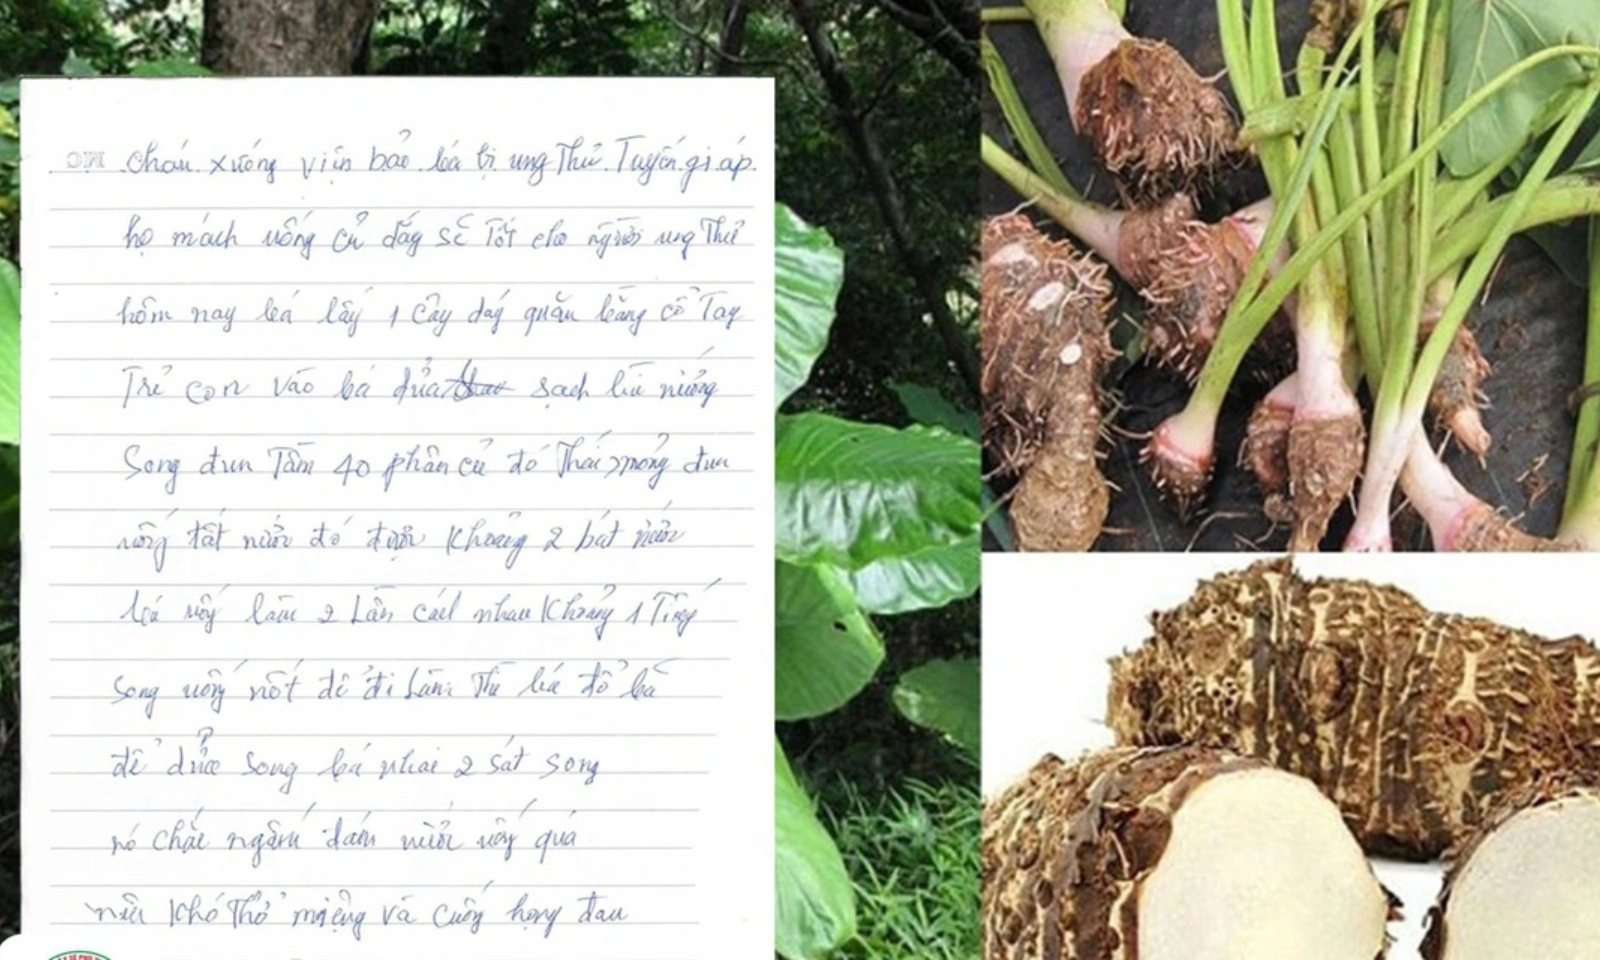 cháu xuống viện bảo bá bị ung Thử Tuyến gi áp
họ mách uống củ dáy sẽ Tốt cho người ung Thử
hôm nay bá lấy 1 cây dáy quăn bằng cổ Tay
Trẻ con vào bá dửa sạch
Song đun Tầm 40 phân củ đó Thái mỏng đun
nước đó được Khoảng 2 bát nước
bá uống làm 2 Lần cách nhau Khoảng 1 Tiếng
Song uống nốt để đi Làm Thì bá đổ bã
để dửa Song bá nhai 2 Sát Song
nó chắc ngấm dám nước uống quá
nên Khó Thở miệng và cuống họng đau